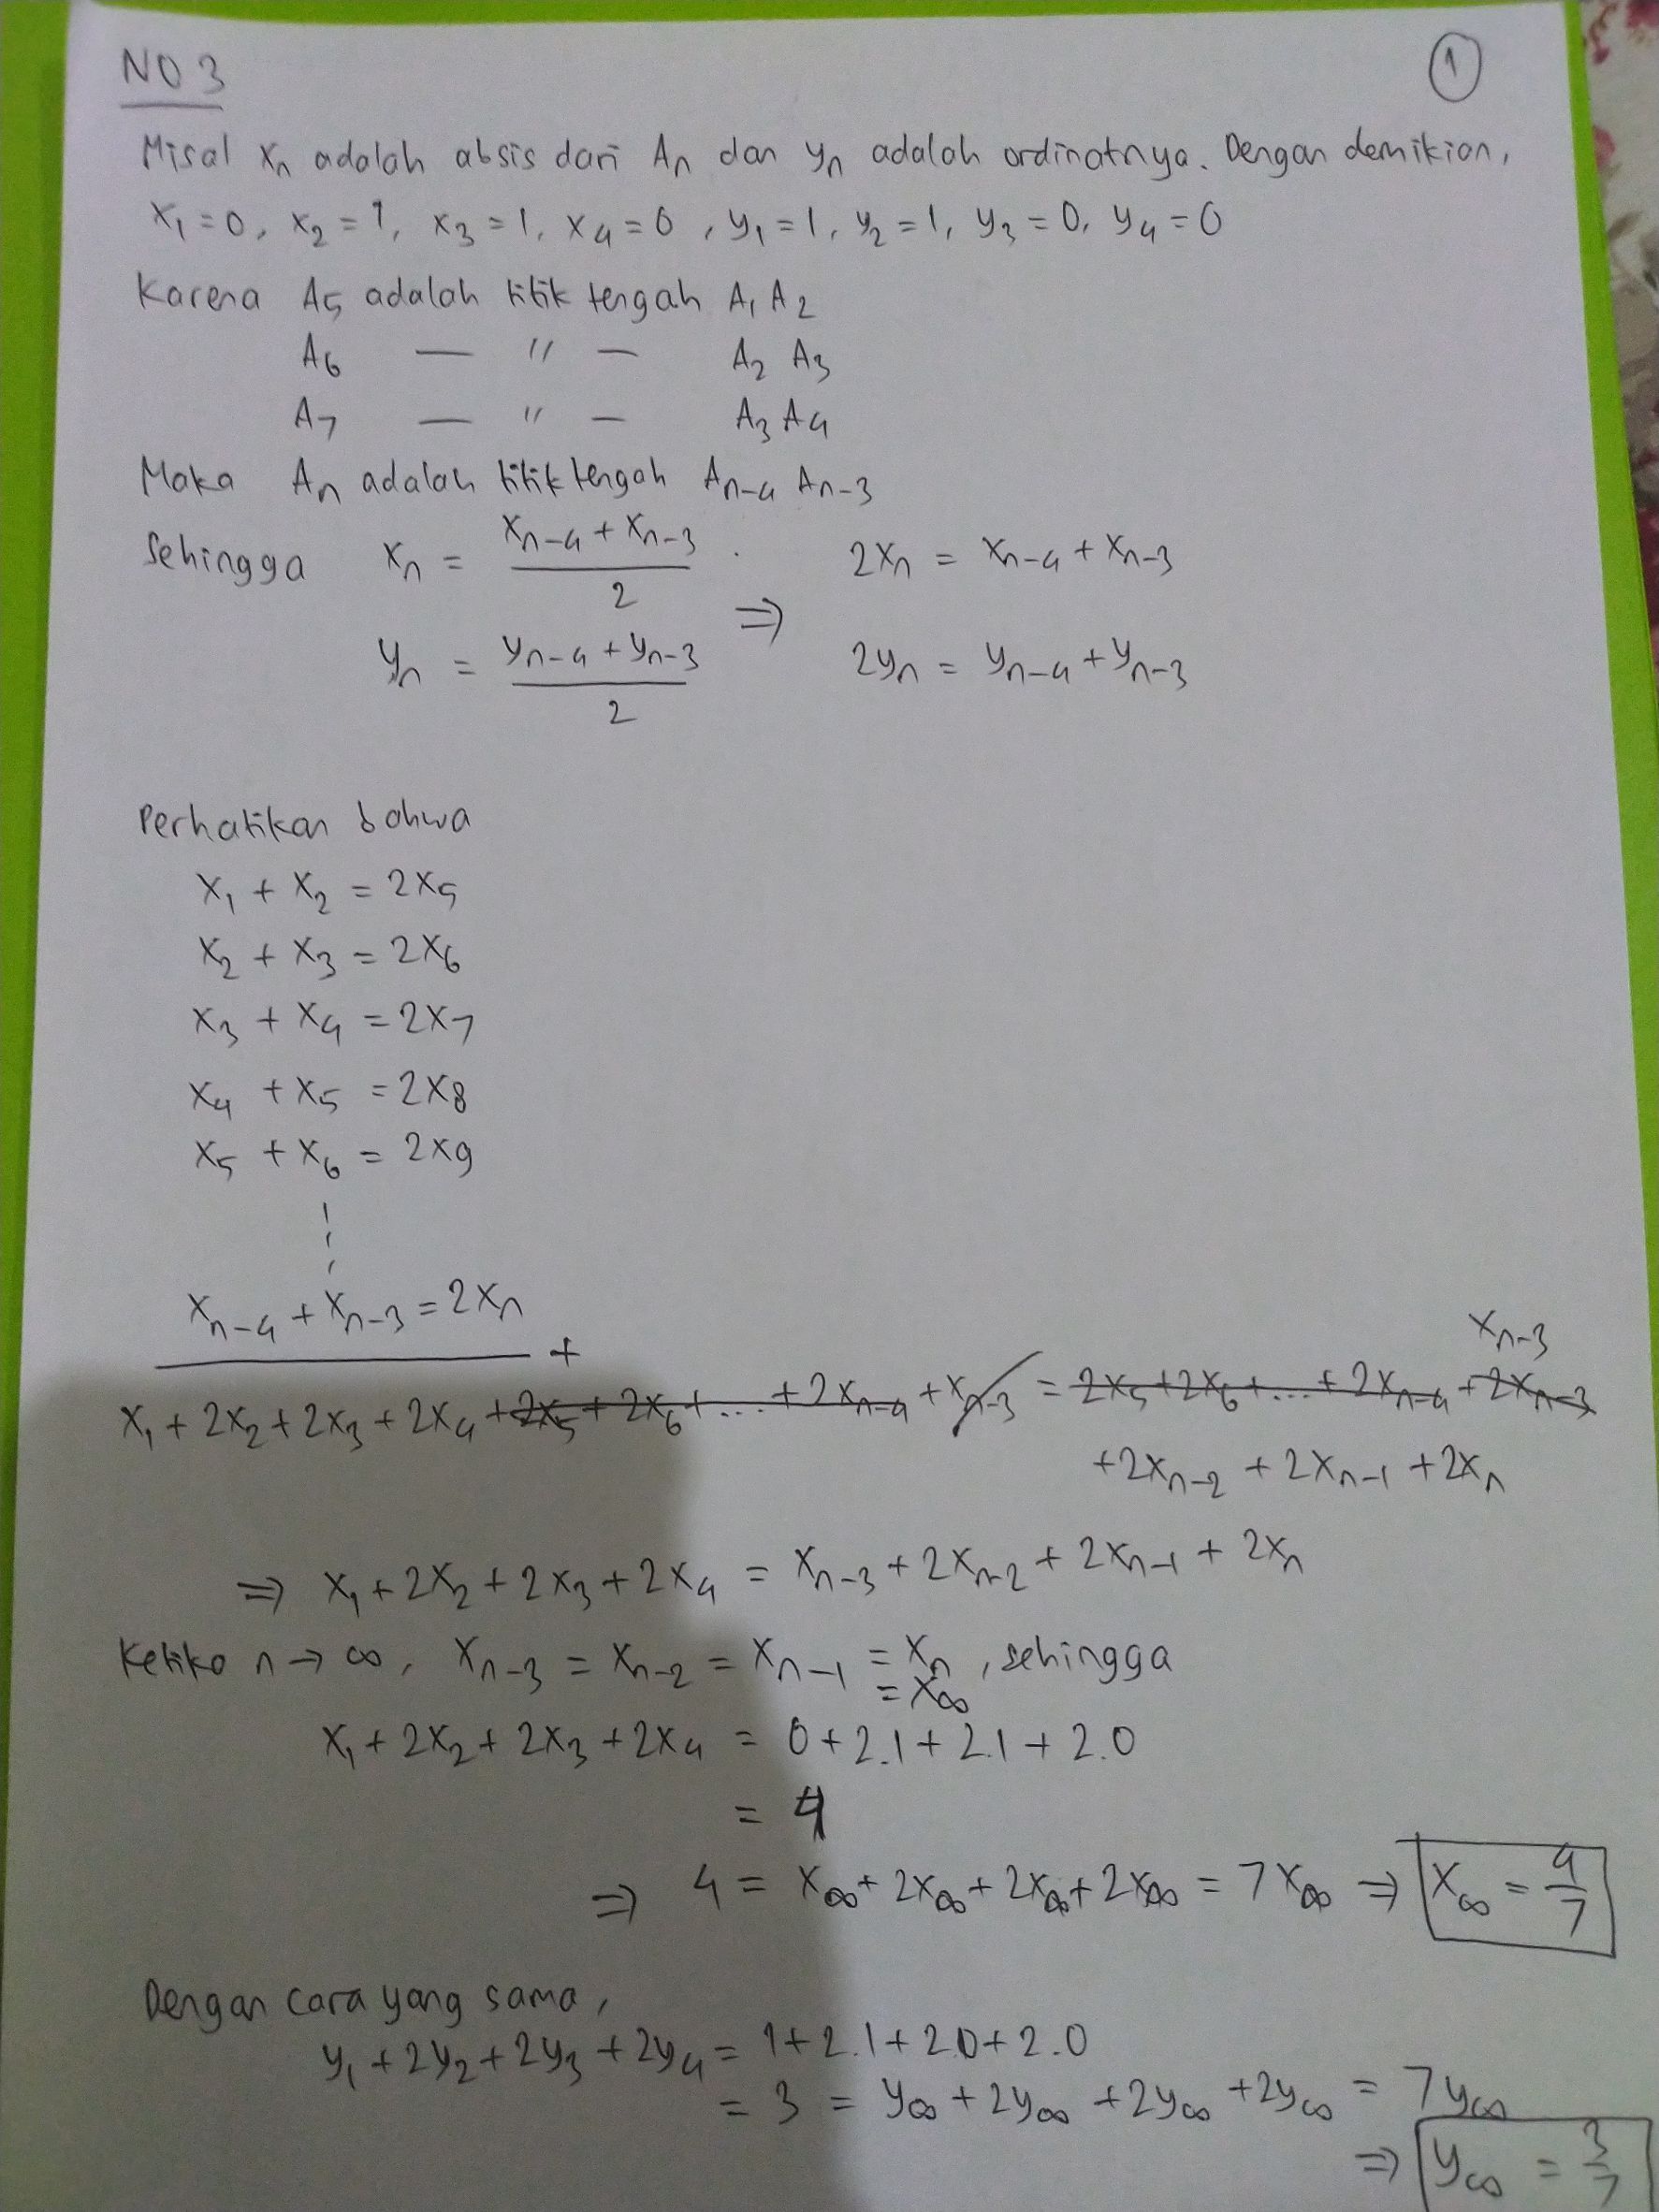 NO 3
1
Misal xₙ adalah absis dari Aₙ dan yₙ adalah ordinatnya. Dengan demikian,
x₁ = 0, x₂ = 1, x₃ = 1, x₄ = 0, y₁ = 1, y₂ = 1, y₃ = 0, y₄ = 0
Karena A₅ adalah titik tengah A₁ A₂
A₆ — " — A₂ A₃
A₇ — " — A₃ A₄
Maka Aₙ adalah titik tengah Aₙ₋₄ Aₙ₋₃
Sehingga xₙ = (xₙ₋₄ + xₙ₋₃)/2 . 2xₙ = xₙ₋₄ + xₙ₋₃
⇒
yₙ = (yₙ₋₄ + yₙ₋₃)/2 2yₙ = yₙ₋₄ + yₙ₋₃
Perhatikan bahwa
x₁ + x₂ = 2x₅
x₂ + x₃ = 2x₆
x₃ + x₄ = 2x₇
x₄ + x₅ = 2x₈
x₅ + x₆ = 2x₉
⋮
xₙ₋₄ + xₙ₋₃ = 2xₙ
+
xₙ₋₃
x₁ + 2x₂ + 2x₃ + 2x₄ + 2x₅ + 2x₆ + ... + 2xₙ₋₄ + xₙ₋₃ = 2x₅ + 2x₆ + ... + 2xₙ₋₄ + 2xₙ₋₃
+ 2xₙ₋₂ + 2xₙ₋₁ + 2xₙ
⇒ x₁ + 2x₂ + 2x₃ + 2x₄ = xₙ₋₃ + 2xₙ₋₂ + 2xₙ₋₁ + 2xₙ
Ketika n → ∞, xₙ₋₃ = xₙ₋₂ = xₙ₋₁ = xₙ, sehingga
= x∞
x₁ + 2x₂ + 2x₃ + 2x₄ = 0 + 2.1 + 2.1 + 2.0
= 4
⇒ 4 = x∞ + 2x∞ + 2x∞ + 2x∞ = 7x∞ ⇒ x∞ = 4/7
Dengan cara yang sama,
y₁ + 2y₂ + 2y₃ + 2y₄ = 1 + 2.1 + 2.0 + 2.0
= 3 = y∞ + 2y∞ + 2y∞ + 2y∞ = 7y∞
⇒ y∞ = 3/7